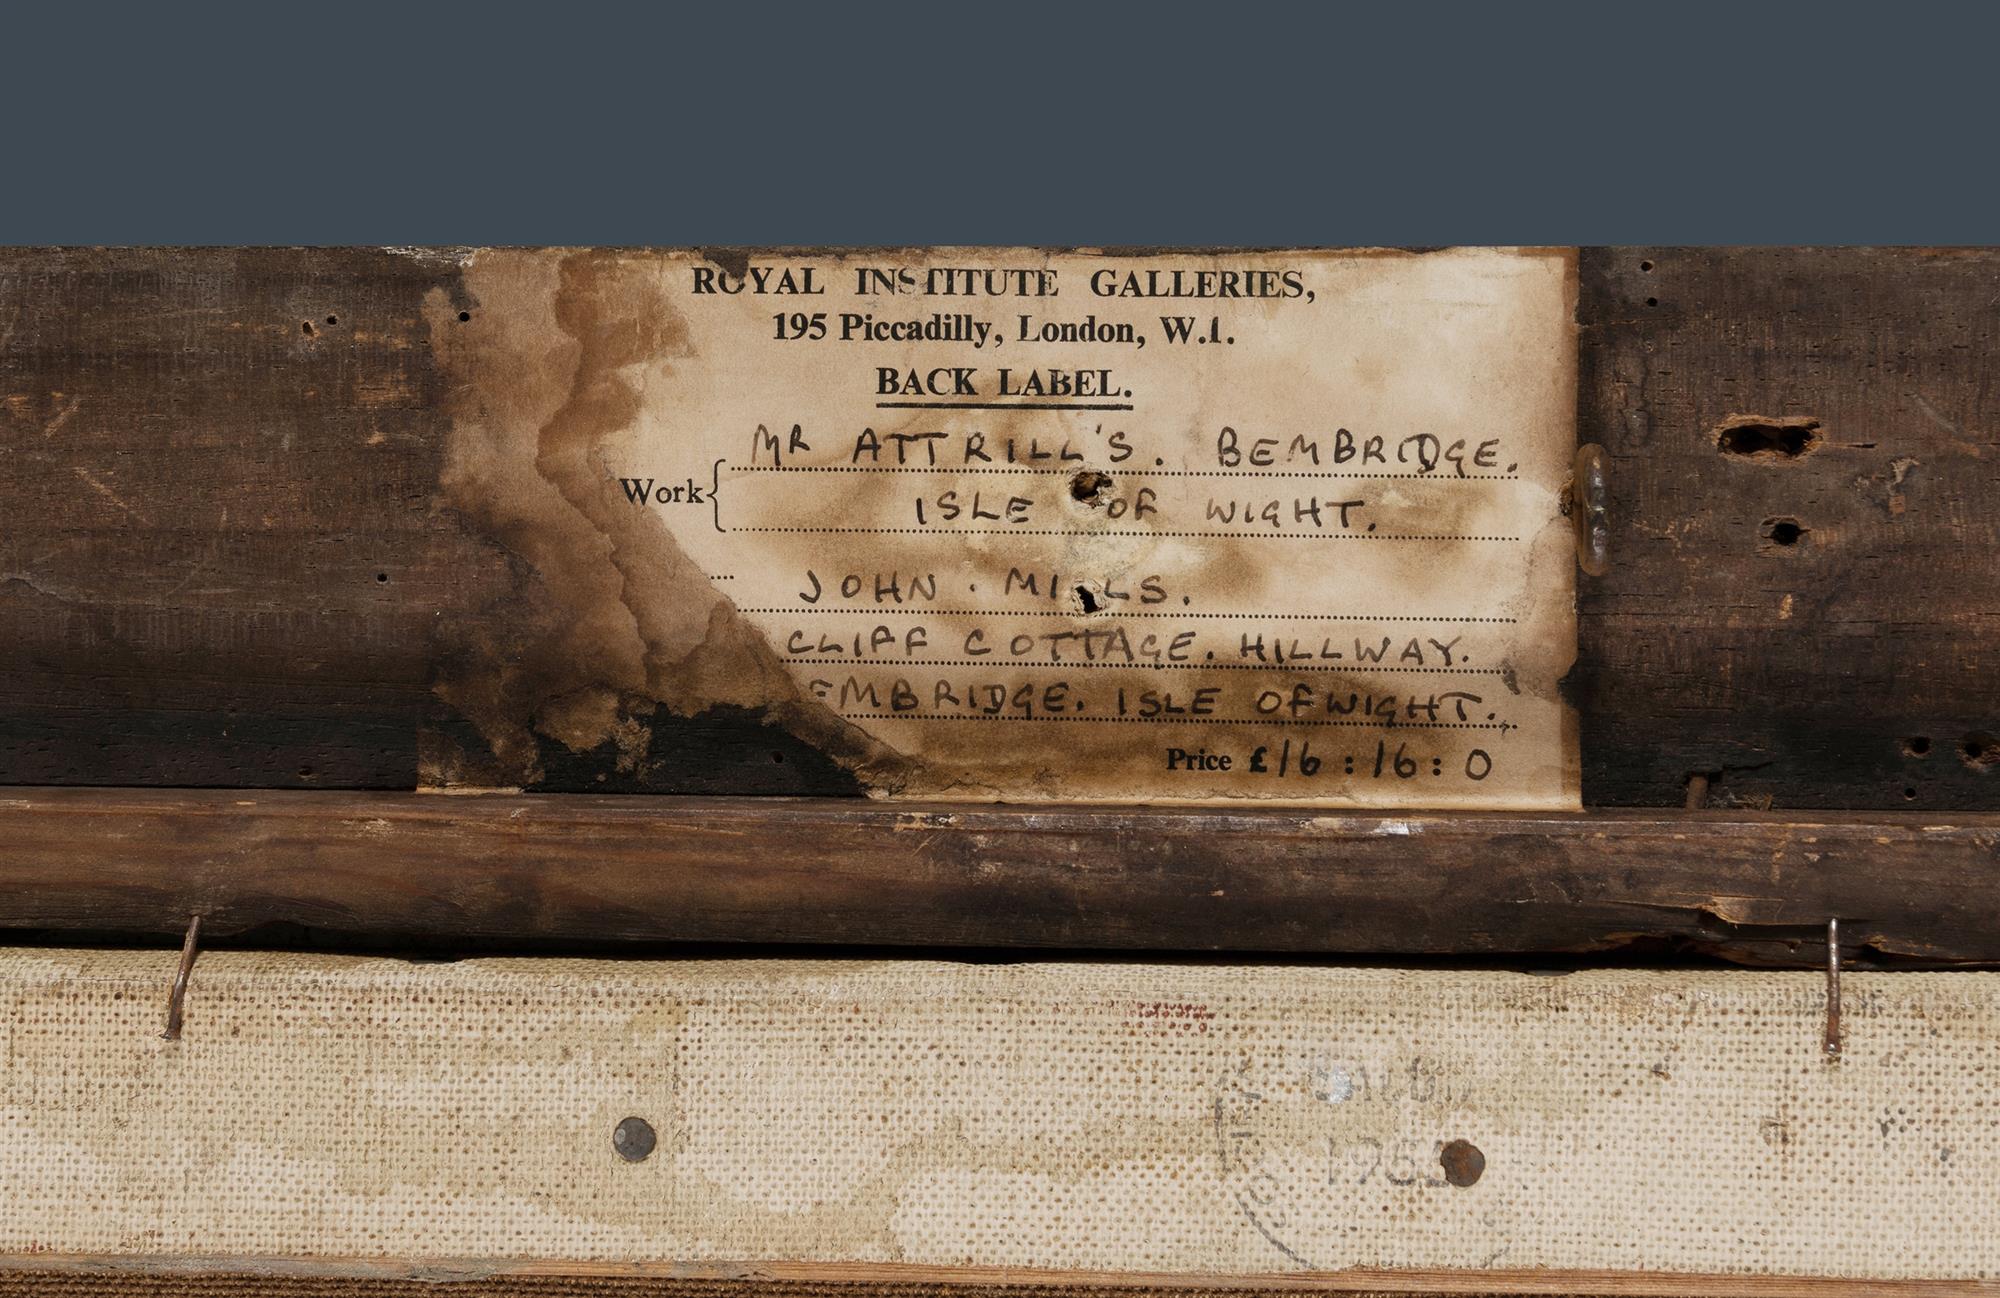 ROYAL INSTITUTE GALLERIES,
195 Piccadilly, London, W.1.
BACK LABEL.
MR ATTRILL'S. BEMBRIDGE.
Work ISLE OF WIGHT.
JOHN. MILLS.
CLIFF COTTAGE. HILLWAY.
EMBRIDGE. ISLE OF WIGHT.
Price £16:16:0